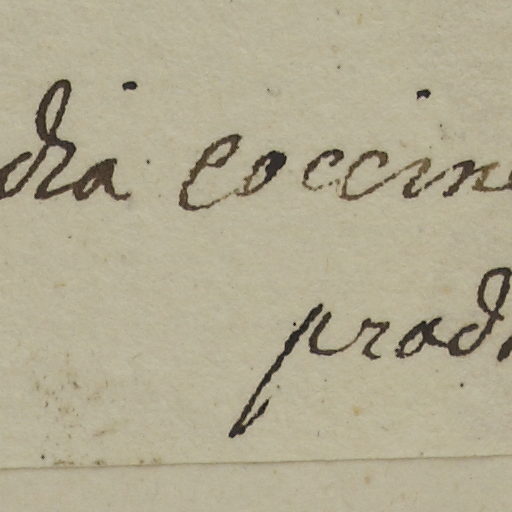 dia coccine
prod